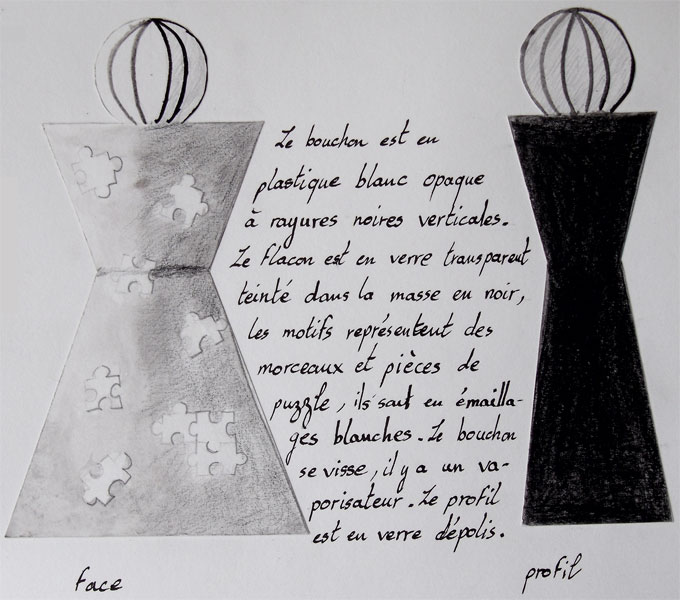 Le bouchon est en
plastique blanc opaque
à rayures noires verticales.
Le flacon est en verre transparent
teinté dans la masse en noir,
les motifs représentent des
morceaux et pièces de
puzzle, ils sont en émailla-
ges blanches. Le bouchon
se visse, il y a un va-
porisateur. Le profil
est en verre dépolis.
face
profil